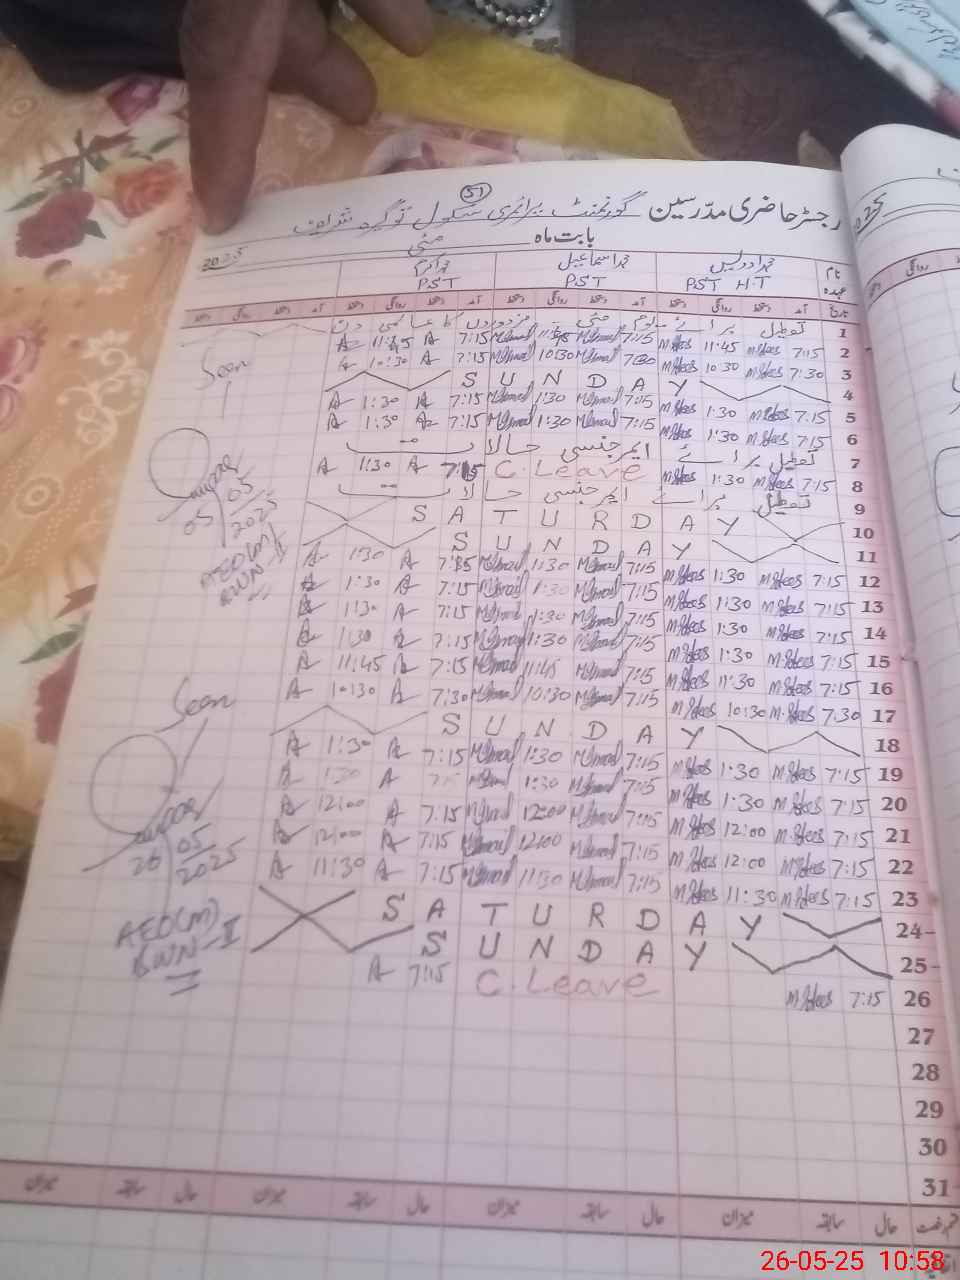 51
رجسٹر حاضری مدرسین گورنمنٹ پرائمری سکول توگیرہ شریف
2025 بابت ماہ مئی
نام عہدہ محمد ادریس محمد اسماعیل محمد اکرم
P.S.T H.T P.S.T P.S.T
تاریخ آمد دستخط روانگی دستخط آمد دستخط روانگی دستخط آمد دستخط روانگی دستخط آمد دستخط روانگی دستخط
1 تعطیل برائے یوم مئی مزدوروں کا عالمی دن
2 7:15 M.Idrees 11:45 M.Idrees 7:15 11:45 7:15 A 11:45 A
3 7:30 M.Idrees 10:30 M.Idrees 7:30 10:30 7:15 A 10:30 A
4 S U N D A Y
5 7:15 M.Idrees 1:30 M.Idrees 7:15 1:30 7:15 A 1:30 A
6 7:15 M.Idrees 1:30 M.Idrees 7:15 1:30 7:15 A 1:30 A
7 تعطیل برائے ایمرجنسی حالات
8 7:15 M.Idrees 1:30 M.Idrees C. Leave 7:15 A 1:30 A
9 تعطیل برائے ایمرجنسی حالات
10 S A T U R D A Y
11 S U N D A Y
12 7:15 M.Idrees 1:30 M.Idrees 7:15 1:30 7:15 A 1:30 A
13 7:15 M.Idrees 1:30 M.Idrees 7:15 1:30 7:15 A 1:30 A
14 7:15 M.Idrees 1:30 M.Idrees 7:15 1:30 7:15 A 1:30 A
15 7:15 M.Idrees 1:30 M.Idrees 7:15 1:30 7:15 A 1:30 A
16 7:15 M.Idrees 11:30 M.Idrees 7:15 11:45 7:15 A 11:45 A
17 7:30 M.Idrees 10:30 M.Idrees 7:15 10:30 7:30 A 10:30 A
18 S U N D A Y
19 7:15 M.Idrees 1:30 M.Idrees 7:15 1:30 7:15 A 1:30 A
20 7:15 M.Idrees 1:30 M.Idrees 7:15 1:30 A 1:30 A
21 7:15 M.Idrees 12:00 M.Idrees 7:15 12:00 7:15 A 12:00 A
22 7:15 M.Idrees 12:00 M.Idrees 7:15 12:00 7:15 A 12:00 A
23 7:15 M.Idrees 11:30 M.Idrees 7:15 11:30 7:15 A 11:30 A
24 S A T U R D A Y
25 S U N D A Y
26 7:15 M.Idrees C. Leave 7:15 A
27
28
29
30
31
حال سابقہ میزان حال سابقہ میزان حال سابقہ میزان حال سابقہ میزان
Seen
05
05
2025
AEO(M)
BWN-II
Seen
26
05
2025
AEO(M)
BWN-II
26-05-25 10:58